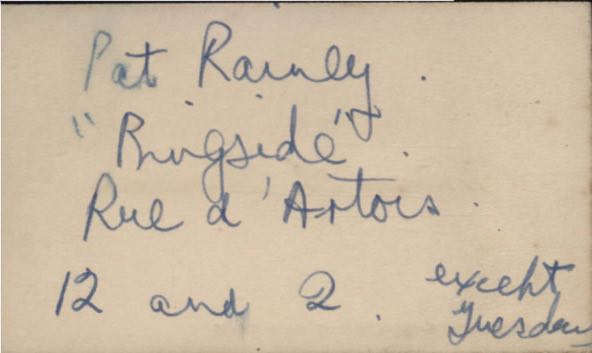 Pat Rainey.
"Ringside".
Rue d'Artois.
12 and 2. except
Tuesday